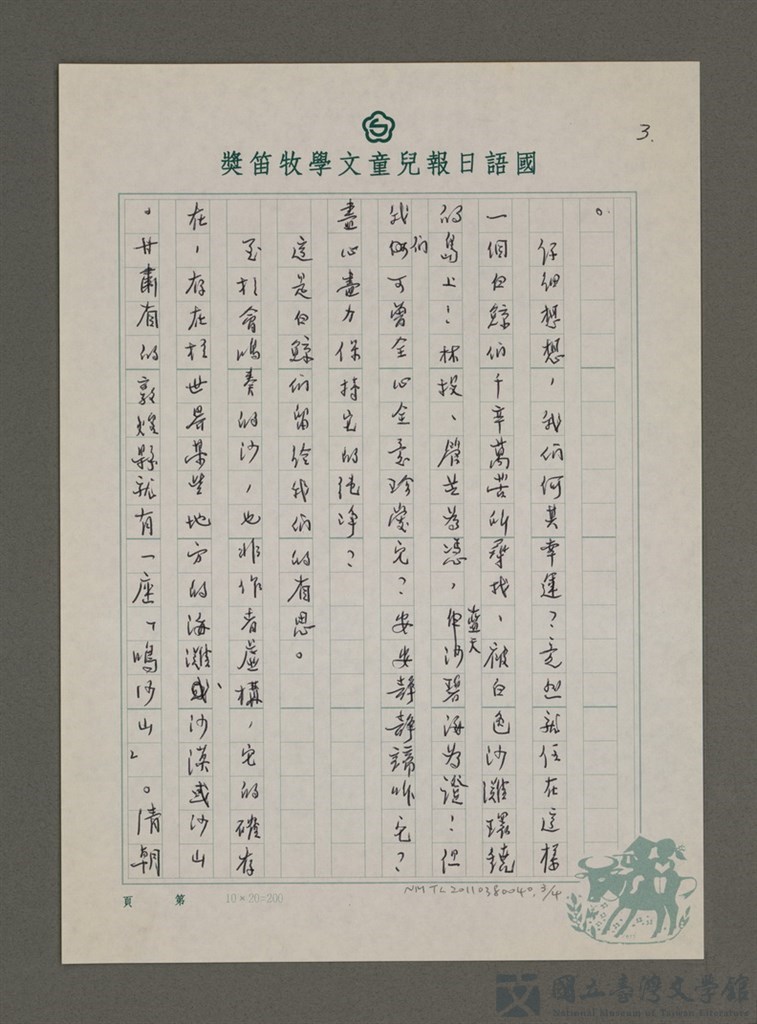 國語日報兒童文學牧笛獎
3.
。
仔細想想，我們何其幸運？竟然就住在這樣
一個白鯨們千辛萬苦所尋找、被白色沙灘環繞
的島上！林投、為憑，藍天白沙碧海為證！但
我們可曾全心全意珍愛它？安安靜靜諦聽它？
盡心盡力保持它的純淨？
這是白鯨們留給我們的省思。
至於會鳴奏的沙，也非作者虛構，它的確存
在，存在於世界某些地方的海灘、沙漠或沙山
。甘肅省的敦煌縣就有一座「鳴沙山」。清朝
第 頁
10×20=200
NMTL20110380040.3/4
國立臺灣文學館
National Museum of Taiwan Literature